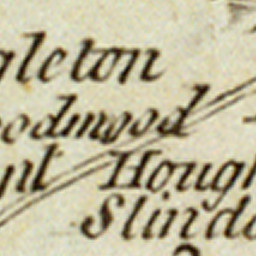 gleton
oodwood
pt Hough
Slinda